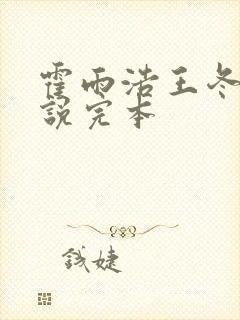 霍雨浩王冬
說完本
錢婕